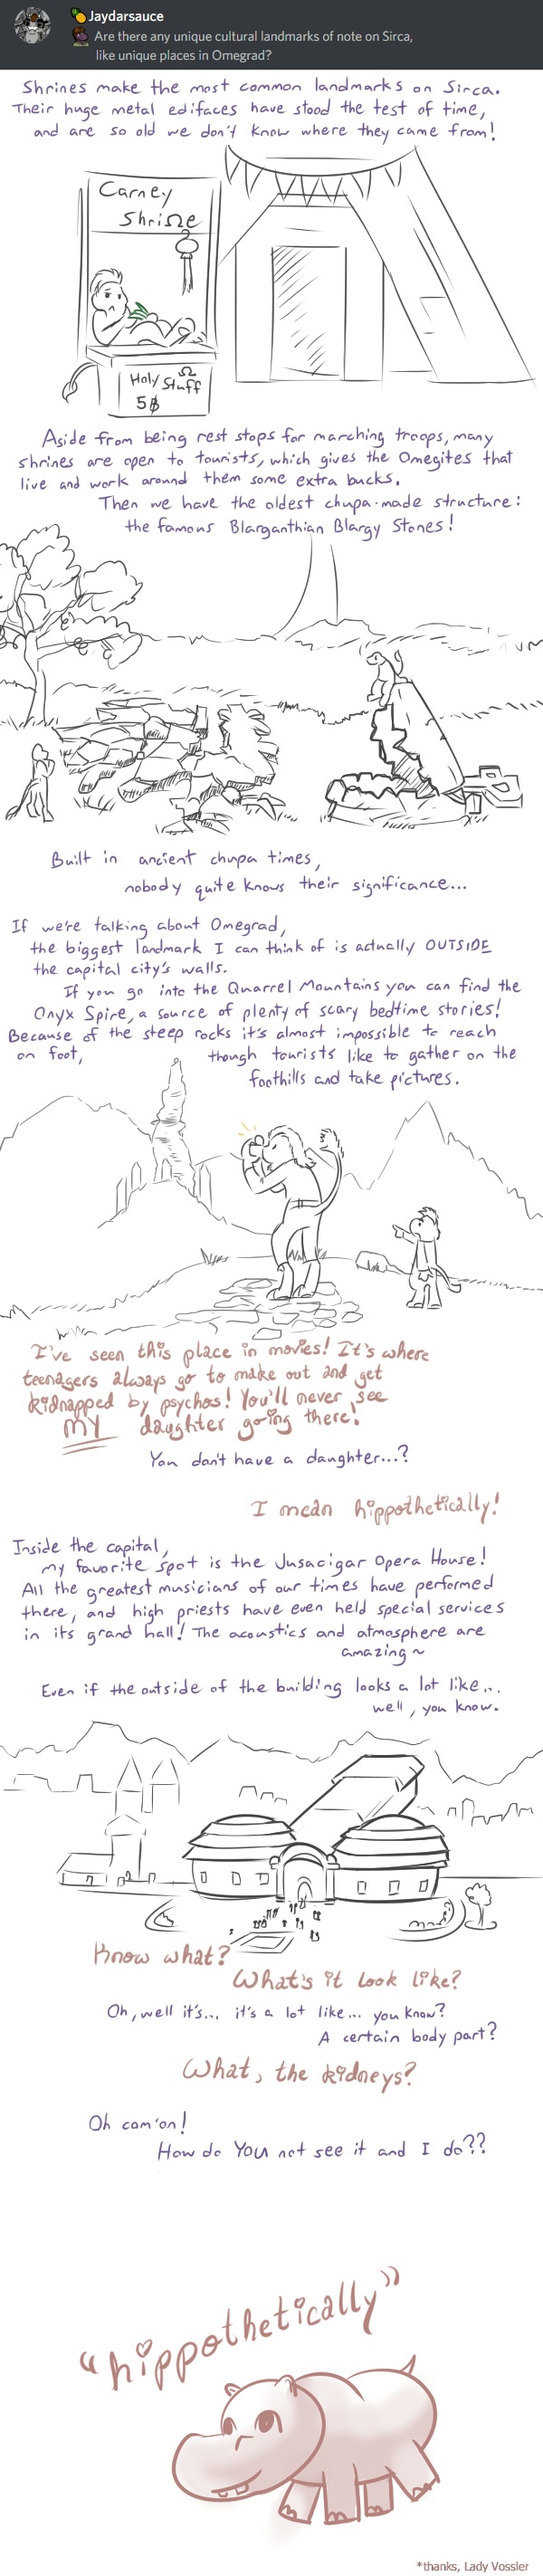 Jaydarsauce
Are there any unique cultural landmarks of note on Sirca,
like unique places in Omegrad?
Shrines make the most common landmarks on Sirca.
Their huge metal edifaces have stood the test of time,
and are so old we don't know where they came from!
Carney
Shrine
Holy Stuff
5
Aside from being rest stops for marching troops, many
shrines are open to tourists, which gives the Omegites that
live and work around them some extra bucks.
Then we have the oldest chupa-made structure:
the famous Blarganthian Blargy Stones!
Built in ancient chupa times,
nobody quite knows their significance...
If we're talking about Omegrad,
the biggest landmark I can think of is actually OUTSIDE
the capital city's walls.
If you go into the Quarrel Mountains you can find the
Onyx Spire, a source of plenty of scary bedtime stories!
Because of the steep rocks it's almost impossible to reach
on foot, though tourists like to gather on the
foothills and take pictures.
I've seen this place in movies! It's where
teenagers always go to make out and get
kidnapped by psychos! You'll never see
MY daughter going there!
You don't have a daughter...?
I mean hippothetically!
Inside the capital,
my favorite spot is the Jusacigar Opera House!
All the greatest musicians of our times have performed
there, and high priests have even held special services
in its grand hall! The acoustics and atmosphere are
amazing~
Even if the outside of the building looks a lot like...
well, you know.
Know what?
What's it look like?
Oh, well it's... it's a lot like... you know?
A certain body part?
What, the kidneys?
Oh com'on!
How do YOU not see it and I do??
"hippothetically"
*thanks, Lady Vossler